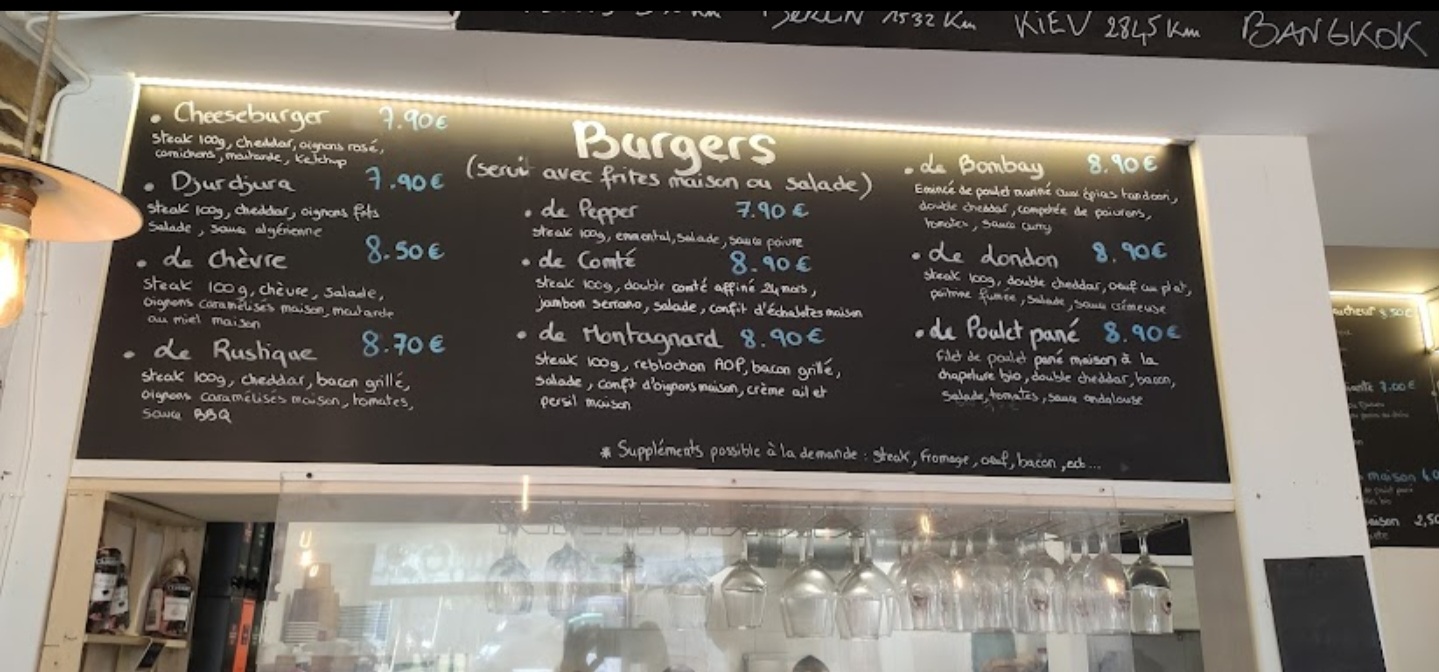 BERLIN 1532 Km KIEV 2845 Km BANGKOK
• Cheeseburger 7.90€
steak 100g, cheddar, oignons rosé,
cornichons, moutarde, ketchup
• Djurdjura 7.90€
steak 100g, cheddar, oignons frits
salade, sauce algérienne
• Le Chèvre 8.50€
steak 100g, chèvre, salade,
oignons caramélisés maison, moutarde
au miel maison
• Le Rustique 8.70€
steak 100g, cheddar, bacon grillé,
oignons caramélisés maison, tomates,
sauce BBQ
Burgers
(servi avec frites maison ou salade)
• Le Pepper 7.90€
steak 100g, emmental, salade, sauce poivre
• Le Comté 8.90€
steak 100g, double comté affiné 24 mois,
jambon serrano, salade, confit d'échalotes maison
• Le Montagnard 8.90€
steak 100g, reblochon AOP, bacon grillé,
salade, confit d'oignons maison, crème ail et
persil maison
• Le Bombay 8.90€
Emincé de poulet mariné aux épices tandoori,
double cheddar, compotée de poivrons,
tomates, sauce curry
• Le London 8.90€
steak 100g, double cheddar, oeuf au plat,
poitrine fumée, salade, sauce crémeuse
• Le Poulet pané 8.90€
filet de poulet pané maison à la
chapelure bio, double cheddar, bacon,
salade, tomates, sauce andalouse
* Suppléments possible à la demande : steak, fromage, oeuf, bacon, ect...
8.50€
7.00€
maison
2,50